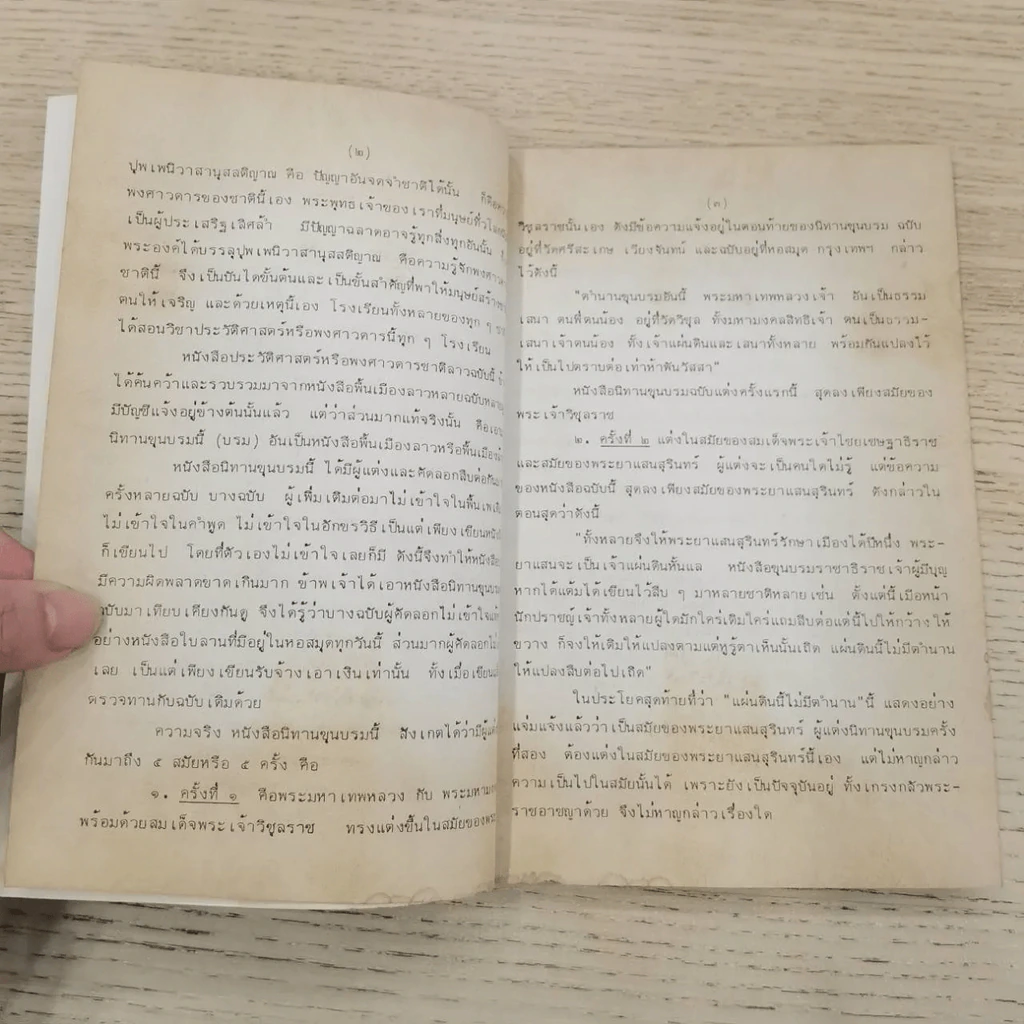 (๒)
ปุพเพนิวาสานุสสติญาณ คือ ปัญญาอันจดจำชาติได้นั้น ก็คือ
พงศาวดารของชาตินี้เอง พระพุทธเจ้าของเราที่มนุษย์ทั่ว
เป็นผู้ประเสริฐเลิศล้ำ มีปัญญาฉลาดอาจรู้ทุกสิ่งทุกอันนั้น
พระองค์ได้บรรลุปุพเพนิวาสานุสสติญาณ คือความรู้จักพงศาวดาร
ชาตินี้ จึงเป็นบันไดขั้นต้นและเป็นขั้นสำคัญที่พาให้มนุษย์สร้าง
ตนให้เจริญ และด้วยเหตุนี้เอง โรงเรียนทั้งหลายของทุก ๆ
ได้สอนวิชาประวัติศาสตร์หรือพงศาวดารนี้ทุก ๆ โรงเรียน
หนังสือประวัติศาสตร์หรือพงศาวดารชาติลาวฉบับนี้
ได้ค้นคว้าและรวบรวมมาจากหนังสือพื้นเมืองลาวหลายฉบับ
มีบัญชีแจ้งอยู่ข้างต้นนั้นแล้ว แต่ว่าส่วนมากแท้จริงนั้น คือ
นิทานขุนบรมนี้ (บรม) อันเป็นหนังสือพื้นเมืองลาวหรือพื้นเมือง
หนังสือนิทานขุนบรมนี้ ได้มีผู้แต่งและคัดลอกสืบต่อกันมา
ครั้งหลายฉบับ บางฉบับ ผู้เพิ่มเติมต่อมาไม่เข้าใจในพื้นเพเดิม
ไม่เข้าใจในคำพูด ไม่เข้าใจในอักขรวิธีเป็นแต่เพียงเขียน
ก็เขียนไป โดยที่ตัวเองไม่เข้าใจเลยก็มี ดังนี้จึงทำให้หนังสือ
มีความผิดพลาดขาดเกินมาก ข้าพเจ้าได้เอาหนังสือนิทานขุนบรม
ฉบับมาเทียบเคียงกันดู จึงได้รู้ว่าบางฉบับผู้คัดลอกไม่เข้าใจ
อย่างหนังสือใบลานที่มีอยู่ในหอสมุดทุกวันนี้ ส่วนมากผู้คัดลอก
เลย เป็นแต่เพียงเขียนรับจ้างเอาเงินเท่านั้น ทั้งเมื่อเขียน
ตรวจทานกับฉบับเดิมด้วย
ความจริง หนังสือนิทานขุนบรมนี้ สังเกตได้ว่ามีผู้แต่ง
กันมาถึง ๕ สมัยหรือ ๕ ครั้ง คือ
๑. ครั้งที่ ๑ คือพระมหาเทพหลวง กับ พระมหา
พร้อมด้วยสมเด็จพระเจ้าวิชูลราช ทรงแต่งขึ้นในสมัยของ
(๓)
วิชูลราชนั้นเอง ดังมีข้อความแจ้งอยู่ในตอนท้ายของนิทานขุนบรม ฉบับ
อยู่ที่วัดศรีสะเกษ เวียงจันทน์ และฉบับอยู่ที่หอสมุด กรุงเทพฯ กล่าว
ไว้ดังนี้
"ตำนานขุนบรมอันนี้ พระมหาเทพหลวงเจ้า อันเป็นธรรม
เสนา ตนพี่ตนน้อง อยู่ที่วัดวิชุล ทั้งมหามงคลสิทธิเจ้า ตนเป็นธรรม-
เสนาเจ้าตนน้อง ทั้งเจ้าแผ่นดินและเสนาทั้งหลาย พร้อมกันแปลงไว้
ให้เป็นไปตราบต่อเท่าห้าพันวัสสา"
หนังสือนิทานขุนบรมฉบับแต่งครั้งแรกนี้ สุดลงเพียงสมัยของ
พระเจ้าวิชูลราช
๒. ครั้งที่ ๒ แต่งในสมัยของสมเด็จพระเจ้าไชยเชษฐาธิราช
และสมัยของพระยาแสนสุรินทร์ ผู้แต่งจะเป็นคนใดไม่รู้ แต่ข้อความ
ของหนังสือฉบับนี้ สุดลงเพียงสมัยของพระยาแสนสุรินทร์ ดังกล่าวใน
ตอนสุดว่าดังนี้
"ทั้งหลายจึงให้พระยาแสนสุรินทร์รักษาเมืองได้ปีหนึ่ง พระ-
ยาแสนจะเป็นเจ้าแผ่นดินหั้นแล หนังสือขุนบรมราชาธิราชเจ้าผู้มีบุญ
หากได้แต้มได้เขียนไว้สืบ ๆ มาหลายชาติหลายเช่น ตั้งแต่นี้เมือหน้า
นักปราชญ์เจ้าทั้งหลายผู้ใดมักใคร่เติมใคร่แถมสืบต่อแต่นี้ไปให้กว้างให้
ขวาง ก็จงให้เติมให้แปลงตามแต่หูรู้ตาเห็นนั้นเถิด แผ่นดินนี้ไม่มีตำนาน
ให้แปลงสืบต่อไปเถิด"
ในประโยคสุดท้ายที่ว่า "แผ่นดินนี้ไม่มีตำนาน"นี้ แสดงอย่าง
แจ่มแจ้งแล้วว่าเป็นสมัยของพระยาแสนสุรินทร์ ผู้แต่งนิทานขุนบรมครั้ง
ที่สอง ต้องแต่งในสมัยของพระยาแสนสุรินทร์นี้เอง แต่ไม่หาญกล่าว
ความเป็นไปในสมัยนั้นได้ เพราะยังเป็นปัจจุบันอยู่ ทั้งเกรงกลัวพระ-
ราชอาชญาด้วย จึงไม่หาญกล่าวเรื่องใด